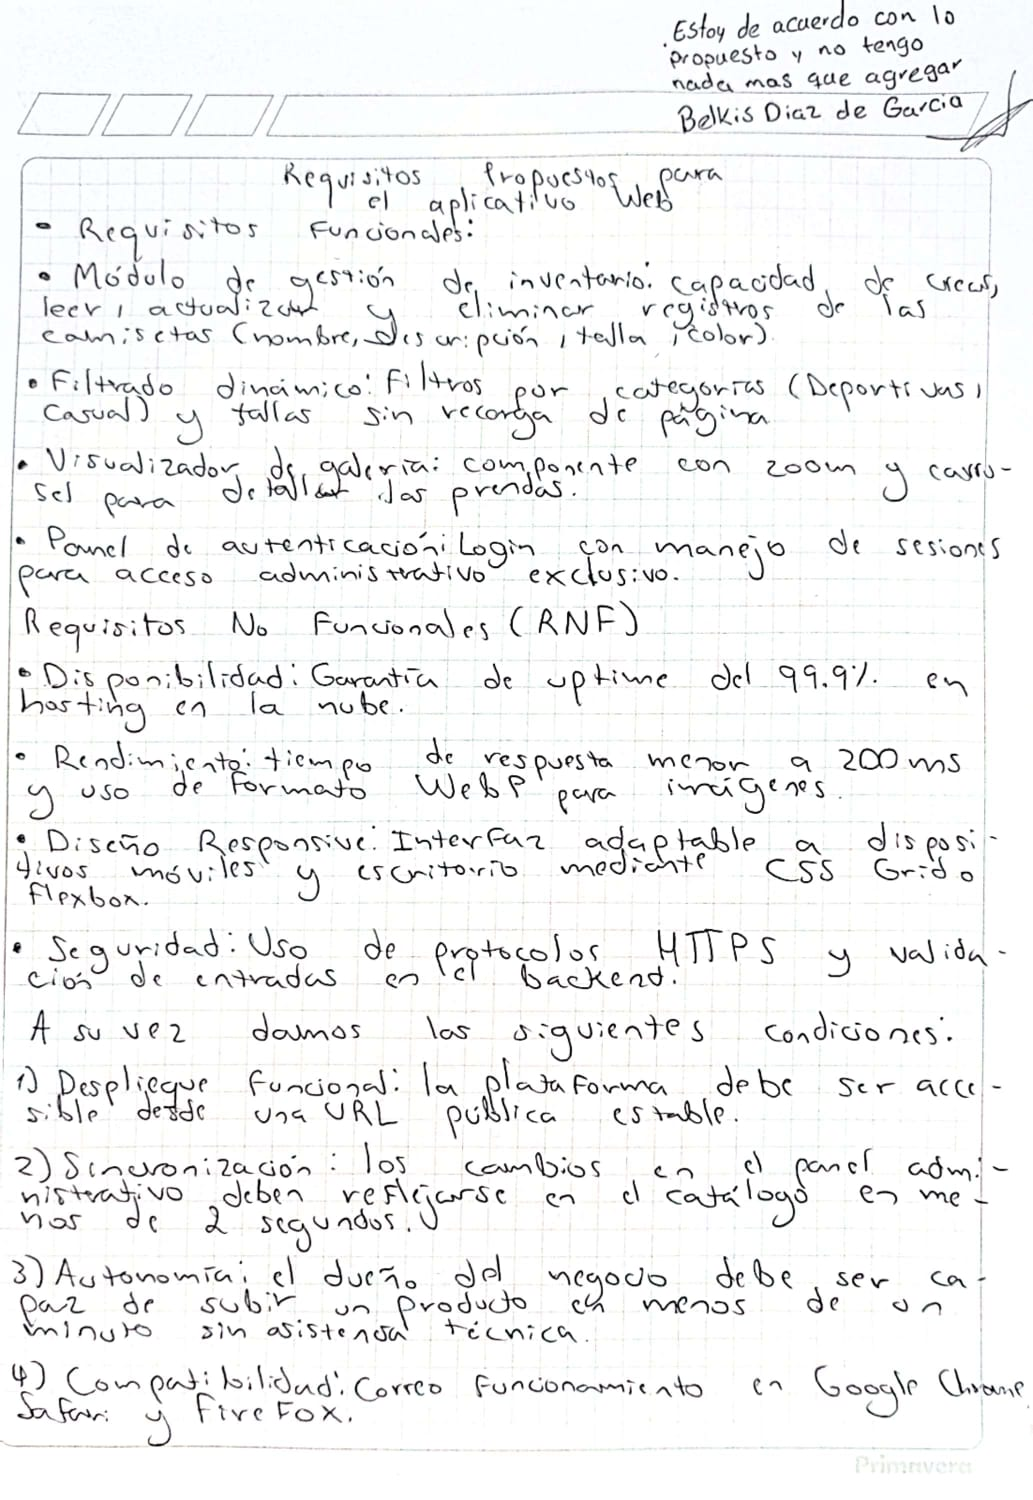 Estoy de acuerdo con lo
propuesto y no tengo
nada mas que agregar
Belkis Diaz de Garcia
Requisitos Propuestos para
el aplicativo Web
• Requisitos Funcionales:
• Módulo de gestión de inventario: capacidad de crear,
leer, actualizar y eliminar registros de las
camisetas (nombre, descripción, talla, color).
• Filtrado dinámico: Filtros por categorías (Deportivas,
Casual) y tallas sin recarga de página
• Visualizador de galería: componente con zoom y carru-
sel para detallar las prendas.
• Panel de autenticación: Login con manejo de sesiones
para acceso administrativo exclusivo.
Requisitos No Funcionales (RNF)
• Disponibilidad: Garantía de uptime del 99.9% en
hosting en la nube.
• Rendimiento: tiempo de respuesta menor a 200 ms
y uso de formato WebP para imágenes.
• Diseño Responsive: Interfaz adaptable a disposi-
tivos móviles y escritorio mediante CSS Grid o
Flexbox.
• Seguridad: Uso de protocolos HTTPS y valida-
ción de entradas en el backend.
A su vez damos las siguientes condiciones:
1) Despliegue Funcional: la plataforma debe ser acce-
sible desde una URL pública estable.
2) Sincronización: los cambios en el panel admi-
nistrativo deben reflejarse en el catálogo en me-
nos de 2 segundos.
3) Autonomía: el dueño del negocio debe ser ca-
paz de subir un producto en menos de un
minuto sin asistensa técnica.
4) Compatibilidad: Correo Funcionamiento en Google Chrome
Safari y FireFox.
Primavera